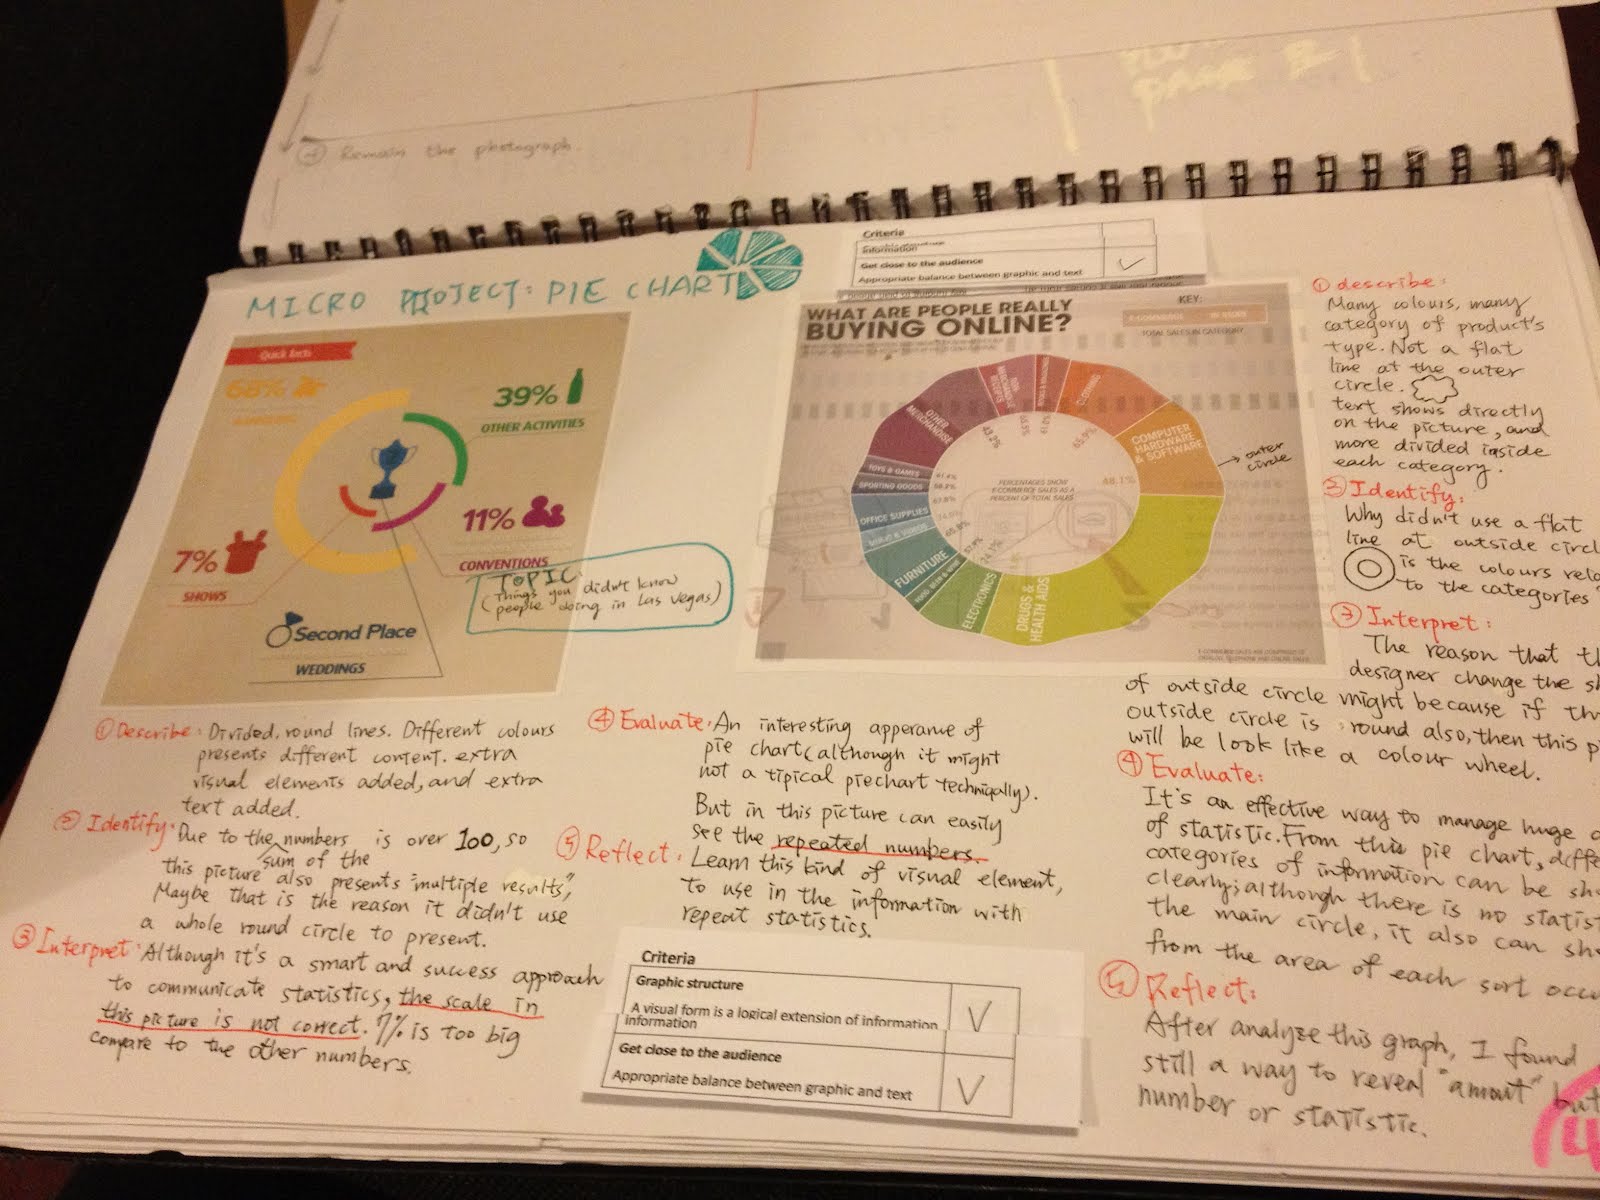 Remain the photograph.
MICRO PROJECT: PIE CHART
Quick facts
68%
39%
OTHER ACTIVITIES
11%
CONVENTIONS
7%
SHOWS
Second Place
WEDDINGS
TOPIC:
(things you didn't know
people doing in Las Vegas)
① Describe: Divided, round lines. Different colours
presents different content. extra
visual elements added, and extra
text added.
② Identify: Due to the numbers is over 100, so
sum of the
this picture also presents "multiple results",
Maybe that is the reason it didn't use
a whole round circle to present.
③ Interpret: Although it's a smart and success approach
to communicate statistics, the scale in
this picture is not correct. 7% is too big
compare to the other numbers.
④ Evaluate: An interesting apperance of
pie chart (although it might
not a tipical piechart techniqally).
But in this picture can easily
see the repeated numbers.
⑤ Reflect: Learn this kind of visual element,
to use in the information with
repeat statistics.
Criteria
Graphic structure
A visual form is a logical extension of information
information
Get close to the audience
Appropriate balance between graphic and text
Criteria
information
Get close to the audience
Appropriate balance between graphic and text
WHAT ARE PEOPLE REALLY
BUYING ONLINE?
KEY:
E-COMMERCE IN STORE
TOTAL SALES IN CATEGORY
CLOTHING
COMPUTER
HARDWARE
& SOFTWARE
DRUGS &
HEALTH AIDS
ELECTRONICS
FURNITURE
OFFICE SUPPLIES
SPORTING GOODS
TOYS & GAMES
OTHER
MERCHANDISE
48.1%
43.2%
PERCENTAGES SHOW
E-COMMERCE SALES AS A
PERCENT OF TOTAL SALES
outer
circle
① describe:
Many colours, many
category of product's
type. Not a flat
line at the outer
circle.
text shows directly
on the picture, and
more divided inside
each category.
② Identify:
Why didn't use a flat
line at outside circl
is the colours rela
to the categories
③ Interpret:
The reason that th
designer change the sh
of outside circle might because if th
outside circle is round also, then this p
will be look like a colour wheel.
④ Evaluate:
It's an effective way to manage huge
of statistic. From this pie chart, diffe
categories of information can be sh
clearly; although there is no statist
the main circle, it also can sh
from the area of each sort occu
⑤ Reflect:
After analyze this graph, I found
still a way to reveal "amout" but
number or statistic.